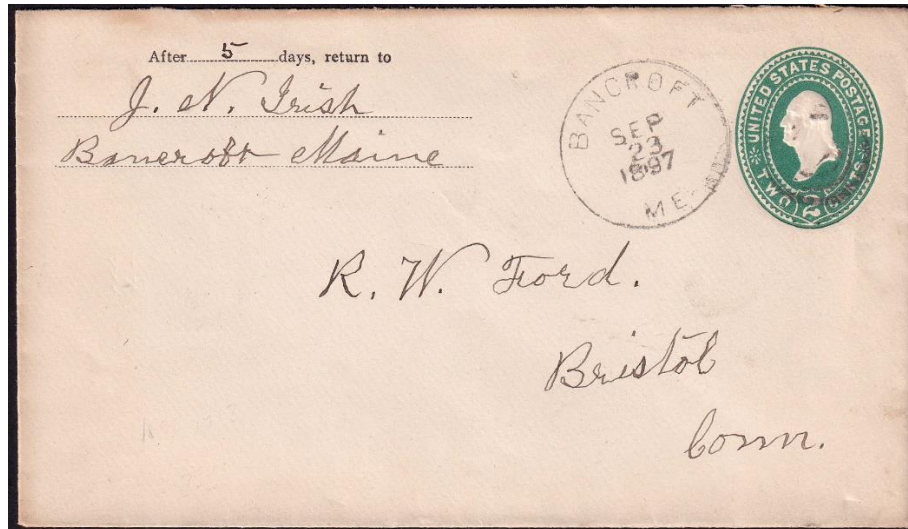 After 5 days, return to
J. N. Irish
Bancroft Maine
BANCROFT
SEP
23
1897
ME.
UNITED STATES POSTAGE
TWO 2 CENTS
R. W. Ford.
Bristol
Conn.